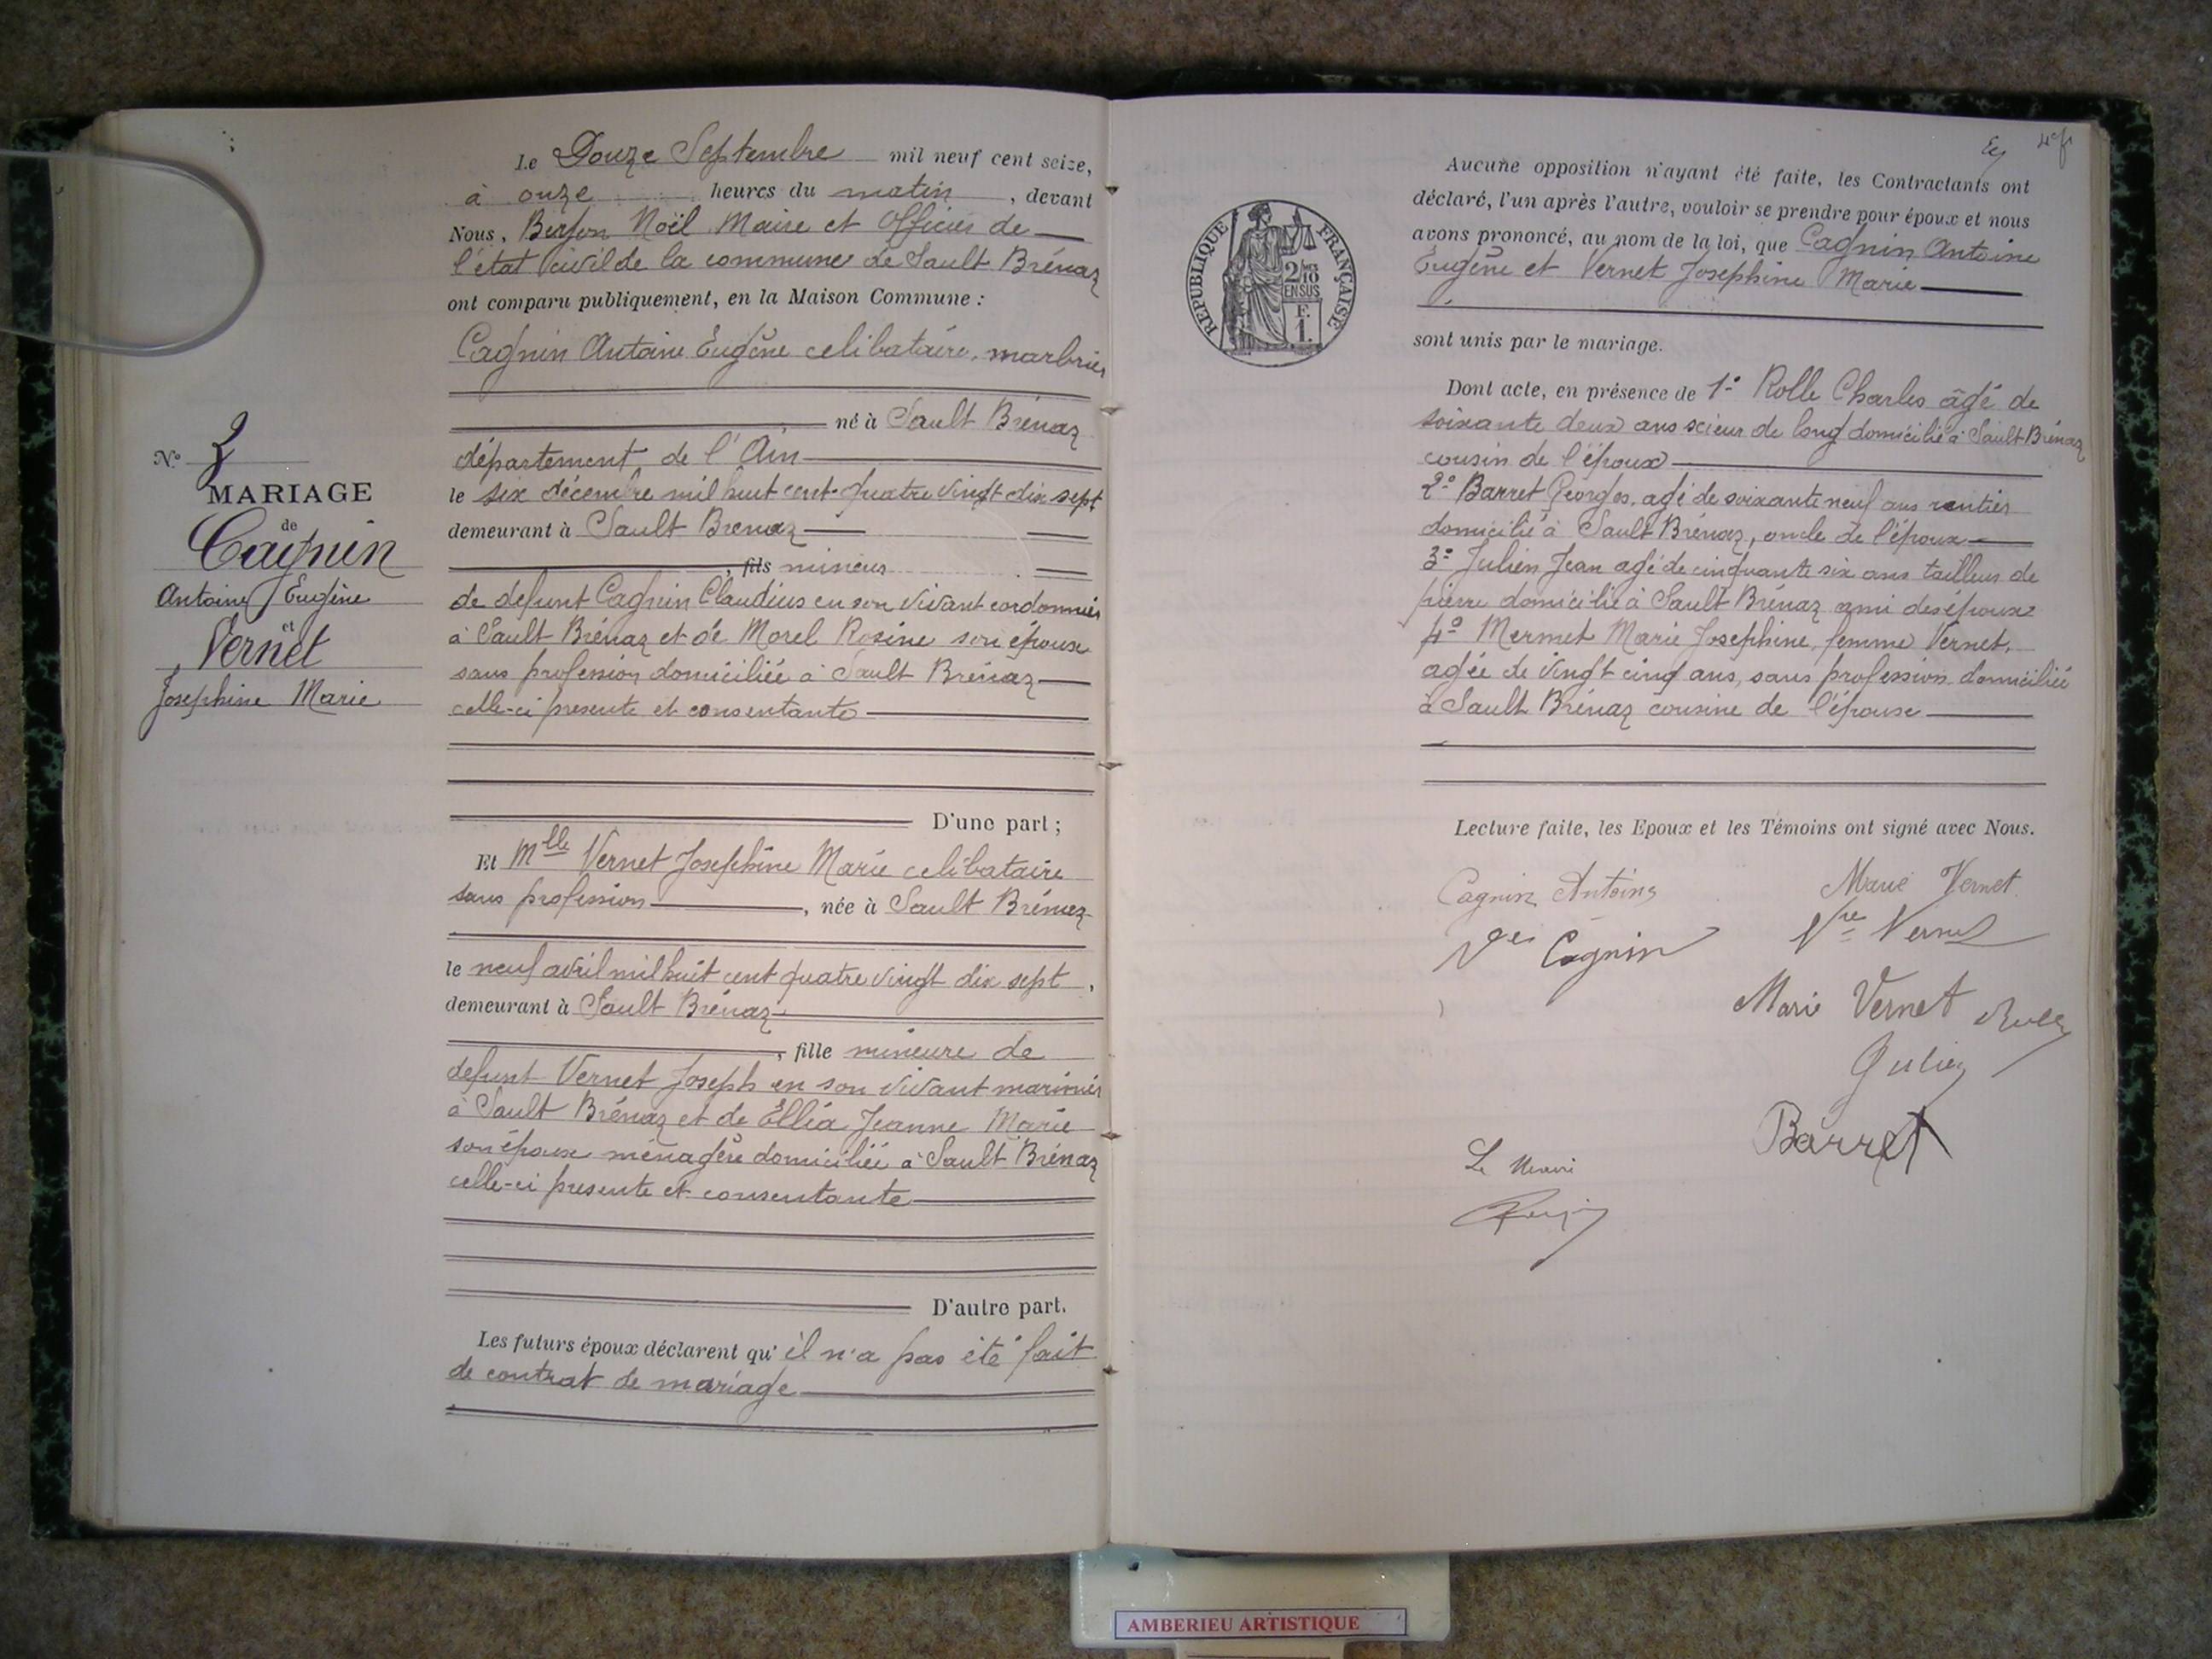 Le Douze Septembre mil neuf cent seize,
à onze heures du matin, devant
Nous, Noël Maire et Officier de
l'état civil de la commune de Sault Brénaz
ont comparu publiquement, en la Maison Commune :
Cagnin Antoine Eugène celibataire, marbrier
né à Sault Brénaz
département de l'Ain
le six décembre mil huit cent quatre vingt dix sept
demeurant à Sault Brenaz
, fils mineur
de defunt Cagnin Claudius en son vivant cordonnier
à Sault Brénaz et de Morel Rosine son épouse
sans profession domiciliée à Sault Brénaz
celle-ci presente et consentante
D'une part ;
Et Mlle Vernet Josephine Marie celibataire
sans profession, née à Sault Brénaz
le neuf avril mil huit cent quatre vingt dix sept,
demeurant à Sault Brénaz
, fille mineure de
defunt Vernet Joseph en son vivant marinier
à Sault Brénaz et de Ellia Jeanne Marie
son épouse ménagère domiciliée à Sault Brénaz
celle-ci presente et consentante
D'autre part.
Les futurs époux déclarent qu'il n'a pas été fait
de contrat de mariage
N°
MARIAGE
de
Cagnin
Antoine Eugène
et
Vernet
Josephine Marie
REPUBLIQUE FRANÇAISE
2/10
EN SUS
F.
1.
Aucune opposition n'ayant été faite, les Contractants ont
déclaré, l'un après l'autre, vouloir se prendre pour époux et nous
avons prononcé, au nom de la loi, que Cagnin Antoine
Eugène et Vernet Josephine Marie
sont unis par le mariage.
Dont acte, en présence de 1° Rolle Charles âgé de
soixante deux ans scieur de long domicilié à Sault Brénaz
cousin de l'époux
2° Barret Georges, agé de soixante neuf ans rentier
domicilié à Sault Brénaz, oncle de l'époux
3° Julien Jean agé de cinquante six ans tailleur de
pierre domicilié à Sault Brénaz ami des époux
4° Mermet Marie Josephine, femme Vernet,
agée de vingt cinq ans, sans profession domiciliée
à Sault Brénaz cousine de l'épouse
Lecture faite, les Epoux et les Témoins ont signé avec Nous.
Cagnin Antoine
Marie Vernet
Vve Cagnin
Vve Vernet
Marie Vernet
Rolle
Julien
Barret
Le Maire
AMBERIEU ARTISTIQUE